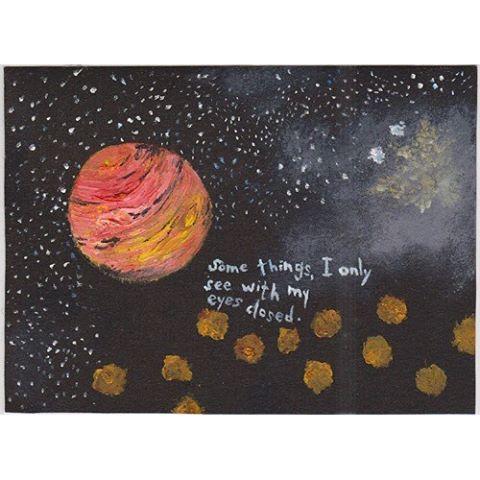 some things, I only
see with my
eyes closed.